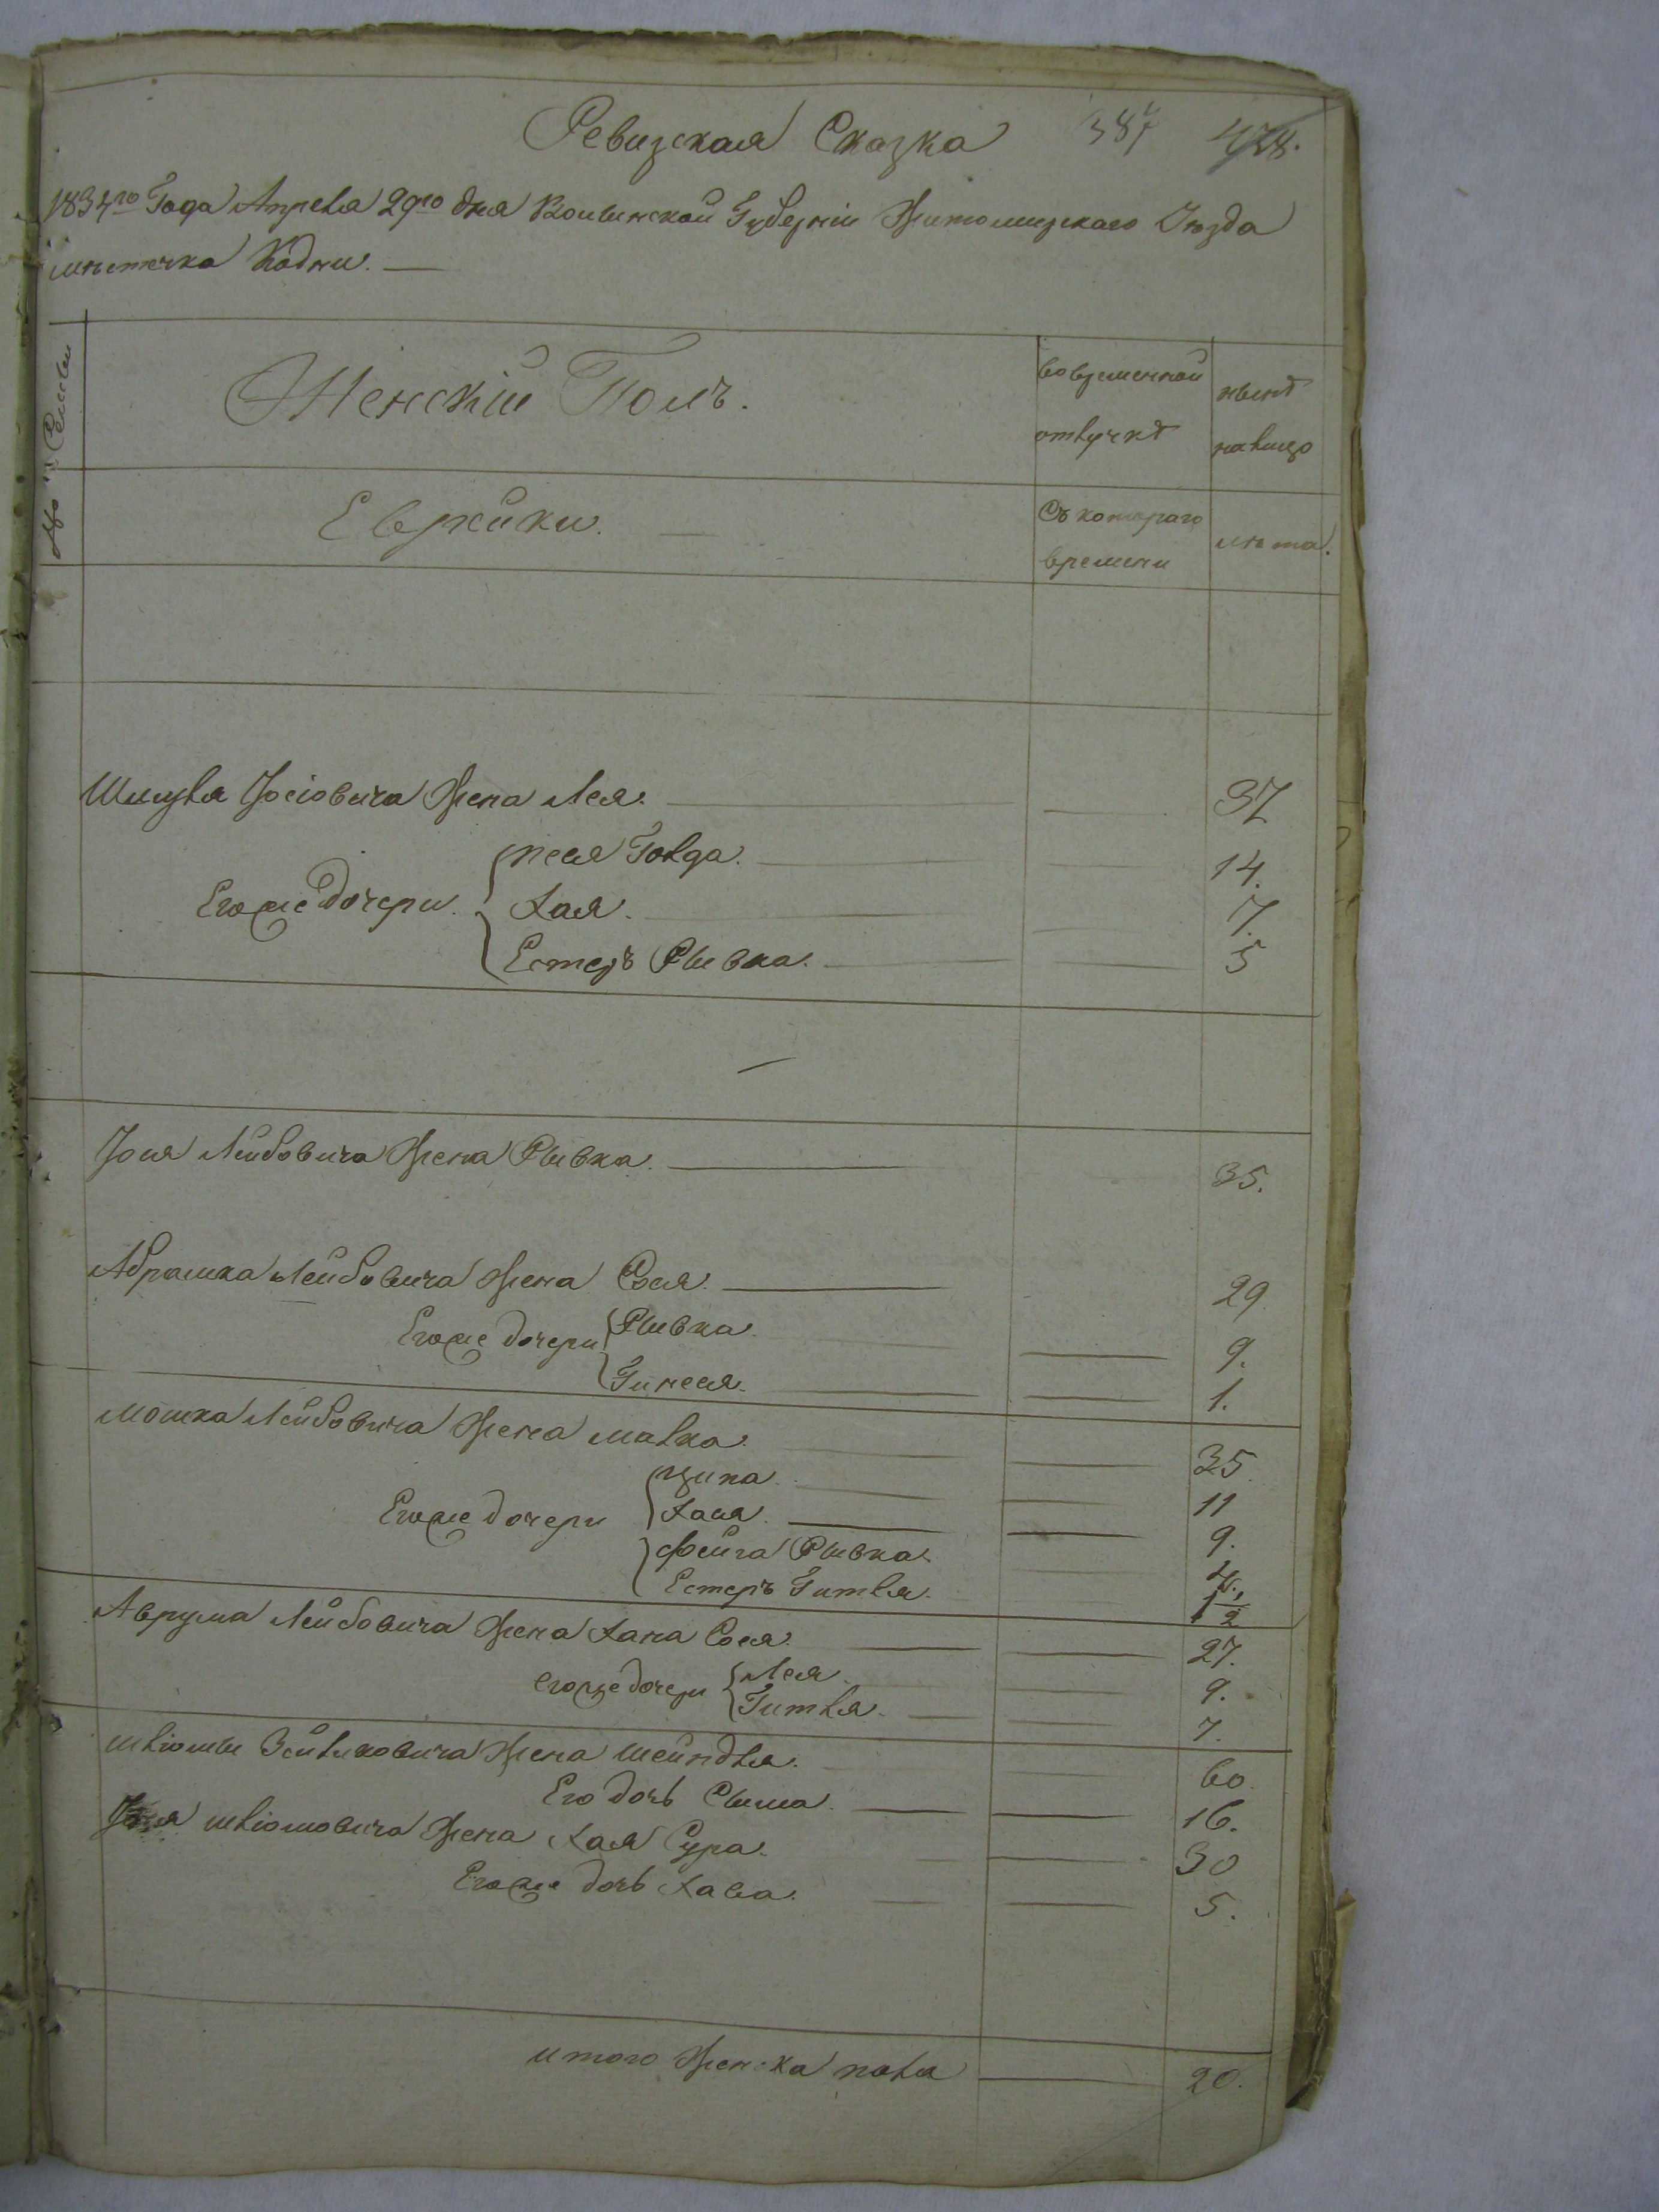 Ревизская Сказка 387 428.
1834го Года Апреля 29го дня Волынской Губерніи Житомирскаго Уѣзда
мѣстечка Кодни. —
No Семьи
Женскій Полъ.
во временной отлучкѣ
нынѣ налицо
Еврейки. —
Съ котораго времени
лѣта.
Шмуля Іосіовича Жена Лея. 37
Егоже Дочери Песя Голда. 14.
Хая. 7.
Естеръ Рывка. 5
Іося Лейбовича Жена Рывка. 35.
Абрамка Лейбовича Жена Сося. 29.
Егоже дочери Рывка. 9.
Гинеся. 1.
Мошка Лейбовича Жена Малка. 35.
Ципа. 11
Егоже дочери Хася. 9.
Фейга Рывка. 4.
Естеръ Гитля. 1/2
Аврума Лейбовича Жена Хана Сося. 27.
егоже дочери Лея. 9.
Гитля. 7.
Шліомы Жена Шейндля. 60.
Его дочь Сыма. 16.
Шліомовича Жена Хая Сура. 30
Егоже дочь Хава. 5.
итого Женска пола 20.